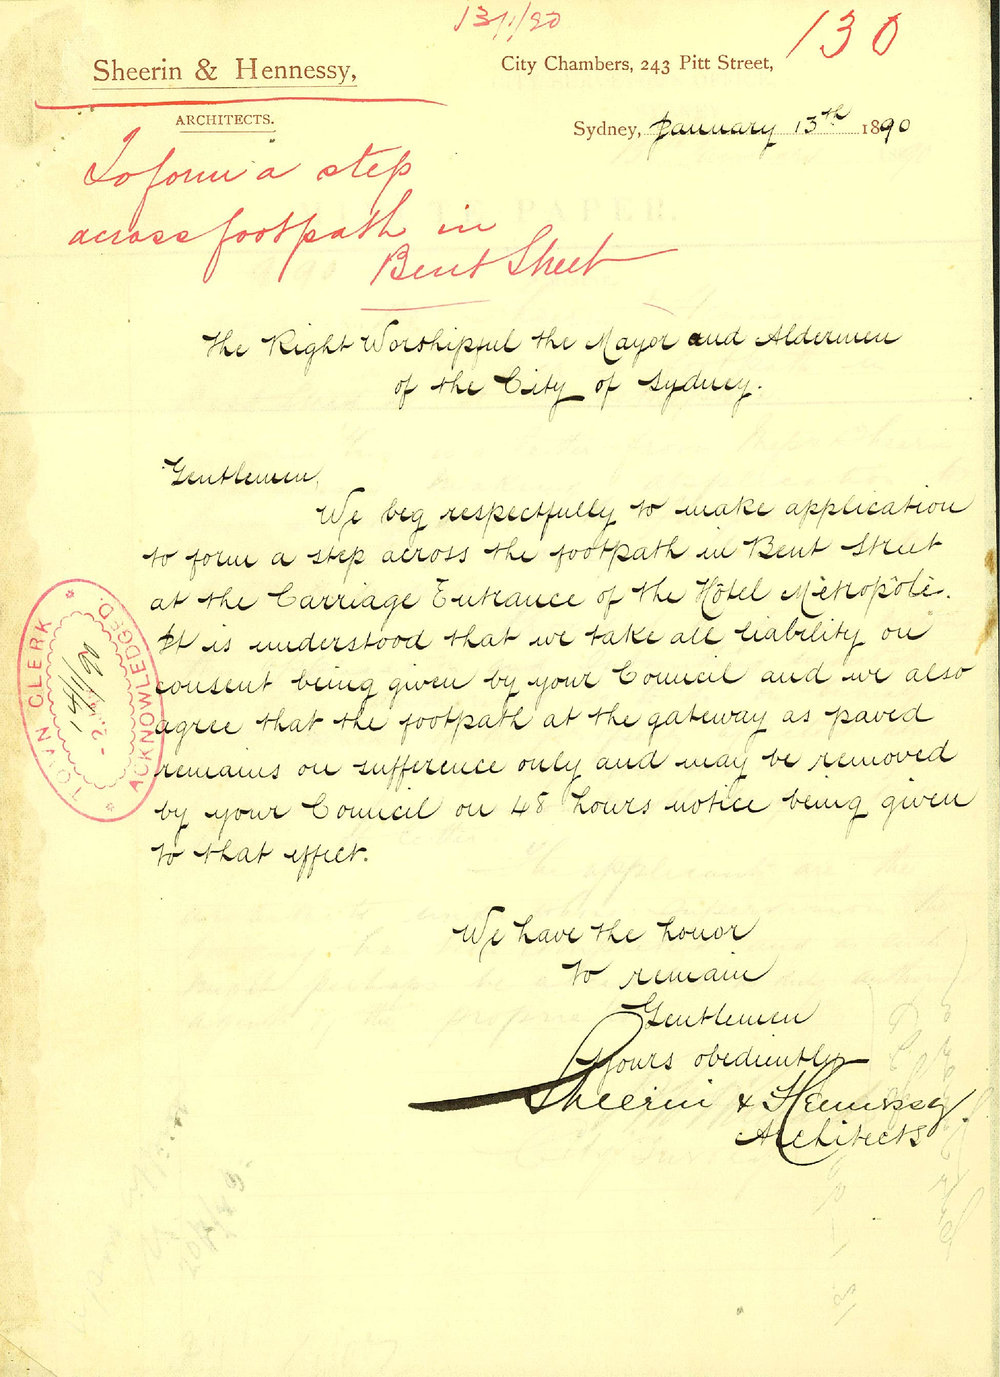 13/1/90
130
Sheerin & Hennessy,
ARCHITECTS.
City Chambers, 243 Pitt Street,
Sydney, January 13th 1890
To form a step
across footpath in
Bent Street
The Right Worshipful the Mayor and Aldermen
of the City of Sydney.
Gentlemen,
We beg respectfully to make application
to form a step across the footpath in Bent Street
at the Carriage Entrance of the Hôtel Métropole.
It is understood that we take all liability on
consent being given by your Council and we also
agree that the footpath at the gateway as paved
remains on sufference only and may be removed
by your Council on 48 hours notice being given
to that effect.
TOWN CLERK
ACKNOWLEDGED.
We have the honor
to remain
Gentlemen
Yours obediently
Sheerin & Hennessy.
Architects